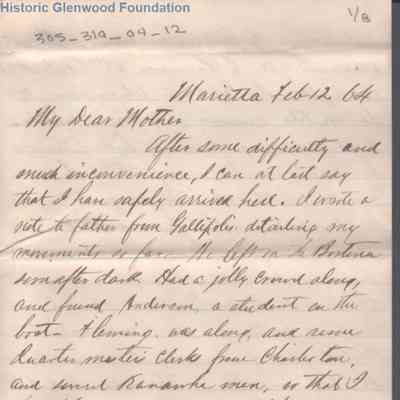 Historic Glenwood Foundation
1/B
305_319_04_12
Marietta Feb 12 64
My Dear Mother
After some difficulty and
much inconvenience, I can at last say
that I have safely arrived here. I wrote a
note to father from Gallipolis detailing my
movements so far. We left on the Bostona
soon after dark Had a jolly crowd along,
and found Anderson a student on the
boat. Fleming was along, and some
Quarter masters clerks from Charleston,
and several Kanawha men, so that I